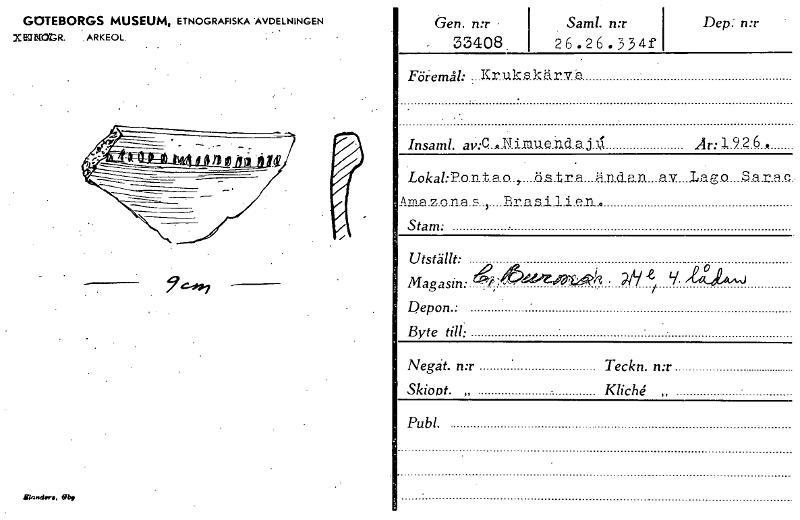 GÖTEBORGS MUSEUM, ETNOGRAFISKA AVDELNINGEN
ARKEOL.
9 cm
Elanders, Gbg
Gen. n:r Saml. n:r Dep. n:r
33408 26.26.334f
Föremål: Krukskärva
Insaml. av: C. Nimuendajú År: 1926.
Lokal: Pontao, östra ändan av Lago Sarac
Amazonas, Brasilien.
Stam:
Utställt:
Magasin: 24 e, 4. lådan
Depon.:
Byte till:
Negat. n:r Teckn. n:r
Skiopt. „ Kliché „
Publ.